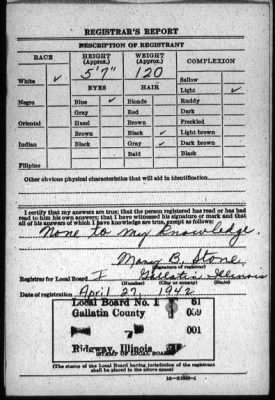 REGISTRAR'S REPORT
DESCRIPTION OF REGISTRANT
RACE HEIGHT (Approx.) WEIGHT (Approx.) COMPLEXION
White ✓ 5'7" 120 Sallow
EYES HAIR Light ✓
Negro Blue ✓ Blonde Ruddy
Gray Red Dark
Oriental Hazel Brown Freckled
Brown Black ✓ Light brown
Indian Black Gray ✓ Dark brown
Bald Black
Filipino
Other obvious physical characteristics that will aid in identification
I certify that my answers are true; that the person registered has read or has had
read to him his own answers; that I have witnessed his signature or mark and that
all of his answers of which I have knowledge are true, except as follows:
None to my knowledge.
Mary B. Stone
(Signature of registrar)
Registrar for Local Board I Gallatin Illinois
(Number) (City or county) (State)
Date of registration April 27, 1942
Local Board No. 1 61
Gallatin County 059
7 001
Ridgway, Illinois
(STAMP OF LOCAL BOARD)
(The stamp of the Local Board having jurisdiction of the registrant
shall be placed in the above space)